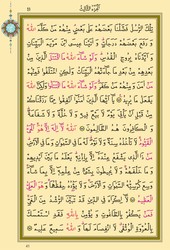 الجزء الثالث
تِلْكَ الرُّسُلُ فَضَّلْنَا بَعْضَهُمْ عَلَىٰ بَعْضٍ مِّنْهُم مَّن كَلَّمَ اللَّهُ
وَرَفَعَ بَعْضَهُمْ دَرَجَاتٍ وَآتَيْنَا عِيسَى ابْنَ مَرْيَمَ الْبَيِّنَاتِ
وَأَيَّدْنَاهُ بِرُوحِ الْقُدُسِ وَلَوْ شَاءَ اللَّهُ مَا اقْتَتَلَ الَّذِينَ
مِن بَعْدِهِم مِّن بَعْدِ مَا جَاءَتْهُمُ الْبَيِّنَاتُ وَلَٰكِنِ اخْتَلَفُوا فَمِنْهُم
مَّنْ آمَنَ وَمِنْهُم مَّن كَفَرَ وَلَوْ شَاءَ اللَّهُ مَا اقْتَتَلُوا وَلَٰكِنَّ اللَّهَ يَفْعَلُ
مَا يُرِيدُ يَا أَيُّهَا الَّذِينَ آمَنُوا أَنفِقُوا مِمَّا رَزَقْنَاكُم
مِّن قَبْلِ أَن يَأْتِيَ يَوْمٌ لَّا بَيْعٌ فِيهِ وَلَا خُلَّةٌ وَلَا شَفَاعَةٌ
وَالْكَافِرُونَ هُمُ الظَّالِمُونَ اللَّهُ لَا إِلَٰهَ إِلَّا هُوَ الْحَيُّ
الْقَيُّومُ لَا تَأْخُذُهُ سِنَةٌ وَلَا نَوْمٌ لَّهُ مَا فِي السَّمَاوَاتِ وَمَا فِي الْأَرْضِ
مَن ذَا الَّذِي يَشْفَعُ عِندَهُ إِلَّا بِإِذْنِهِ يَعْلَمُ مَا بَيْنَ أَيْدِيهِمْ
وَمَا خَلْفَهُمْ وَلَا يُحِيطُونَ بِشَيْءٍ مِّنْ عِلْمِهِ إِلَّا بِمَا شَاءَ
وَسِعَ كُرْسِيُّهُ السَّمَاوَاتِ وَالْأَرْضَ وَلَا يَئُودُهُ حِفْظُهُمَا وَهُوَ الْعَلِيُّ
الْعَظِيمُ لَا إِكْرَاهَ فِي الدِّينِ قَد تَّبَيَّنَ الرُّشْدُ مِنَ الْغَيِّ
فَمَن يَكْفُرْ بِالطَّاغُوتِ وَيُؤْمِن بِاللَّهِ فَقَدِ اسْتَمْسَكَ
بِالْعُرْوَةِ الْوُثْقَىٰ لَا انفِصَامَ لَهَا وَاللَّهُ سَمِيعٌ عَلِيمٌ